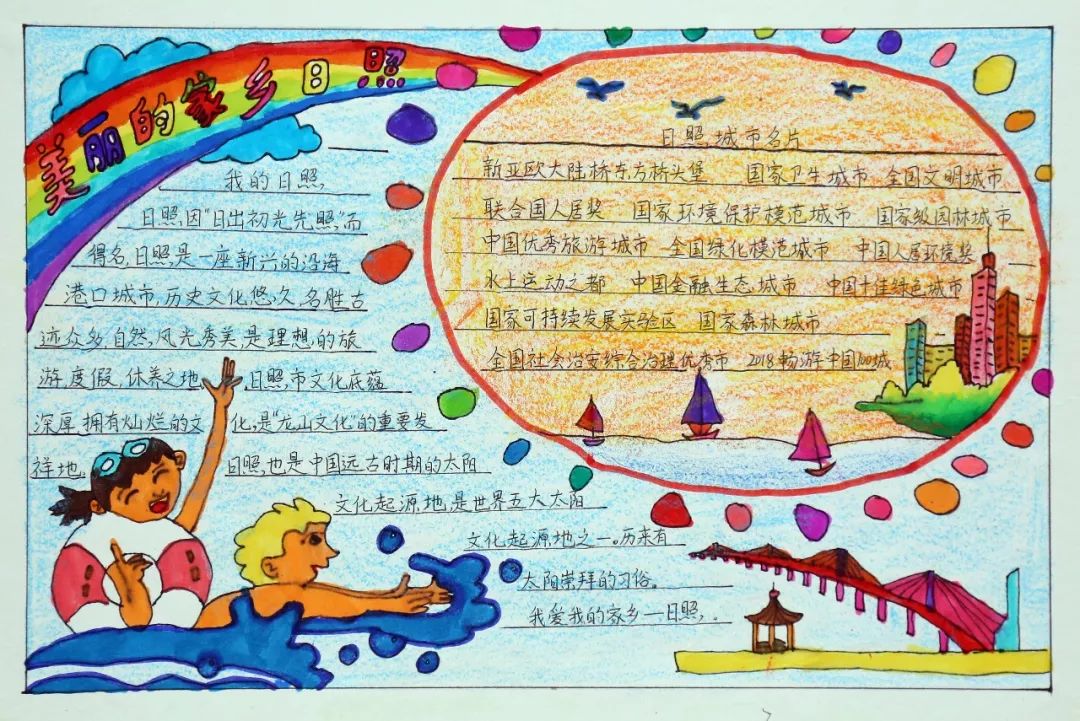 美丽的家乡日照
我的日照
日照,因“日出初光先照”而
得名,日照,是一座新兴的沿海
港口城市,历史文化悠久,名胜古
迹众多,自然风光秀美,是理想的旅
游,度假,休养之地,日照市文化底蕴
深厚,拥有灿烂的文化,是“龙山文化”的重要发
祥地。日照,也是中国远古时期的太阳
文化起源地,是世界五大太阳
文化起源地之一。历来有
太阳崇拜的习俗。
我爱我的家乡—日照,。
日照,城市名片
新亚欧大陆桥东方桥头堡 国家卫生城市 全国文明城市
联合国人居奖 国家环境保护模范城市 国家级园林城市
中国优秀旅游城市 全国绿化模范城市 中国人居环境奖
水上运动之都 中国金融生态城市 中国十佳绿色城市
国家可持续发展实验区 国家森林城市
全国社会治安综合治理优秀市 2018畅游中国100城